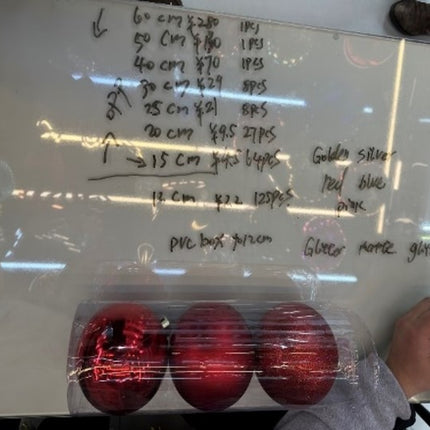 60 cm ¥280 1pcs
50 cm ¥ 1pcs
40 cm ¥70 1pcs
30 cm ¥29 8pcs
25 cm ¥21 8pcs
20 cm ¥9.5 27pcs
15 cm ¥4.5 64pcs
Golden silver
red blue
12 cm ¥2.2 125pcs
pink
PVC box 12cm
matte